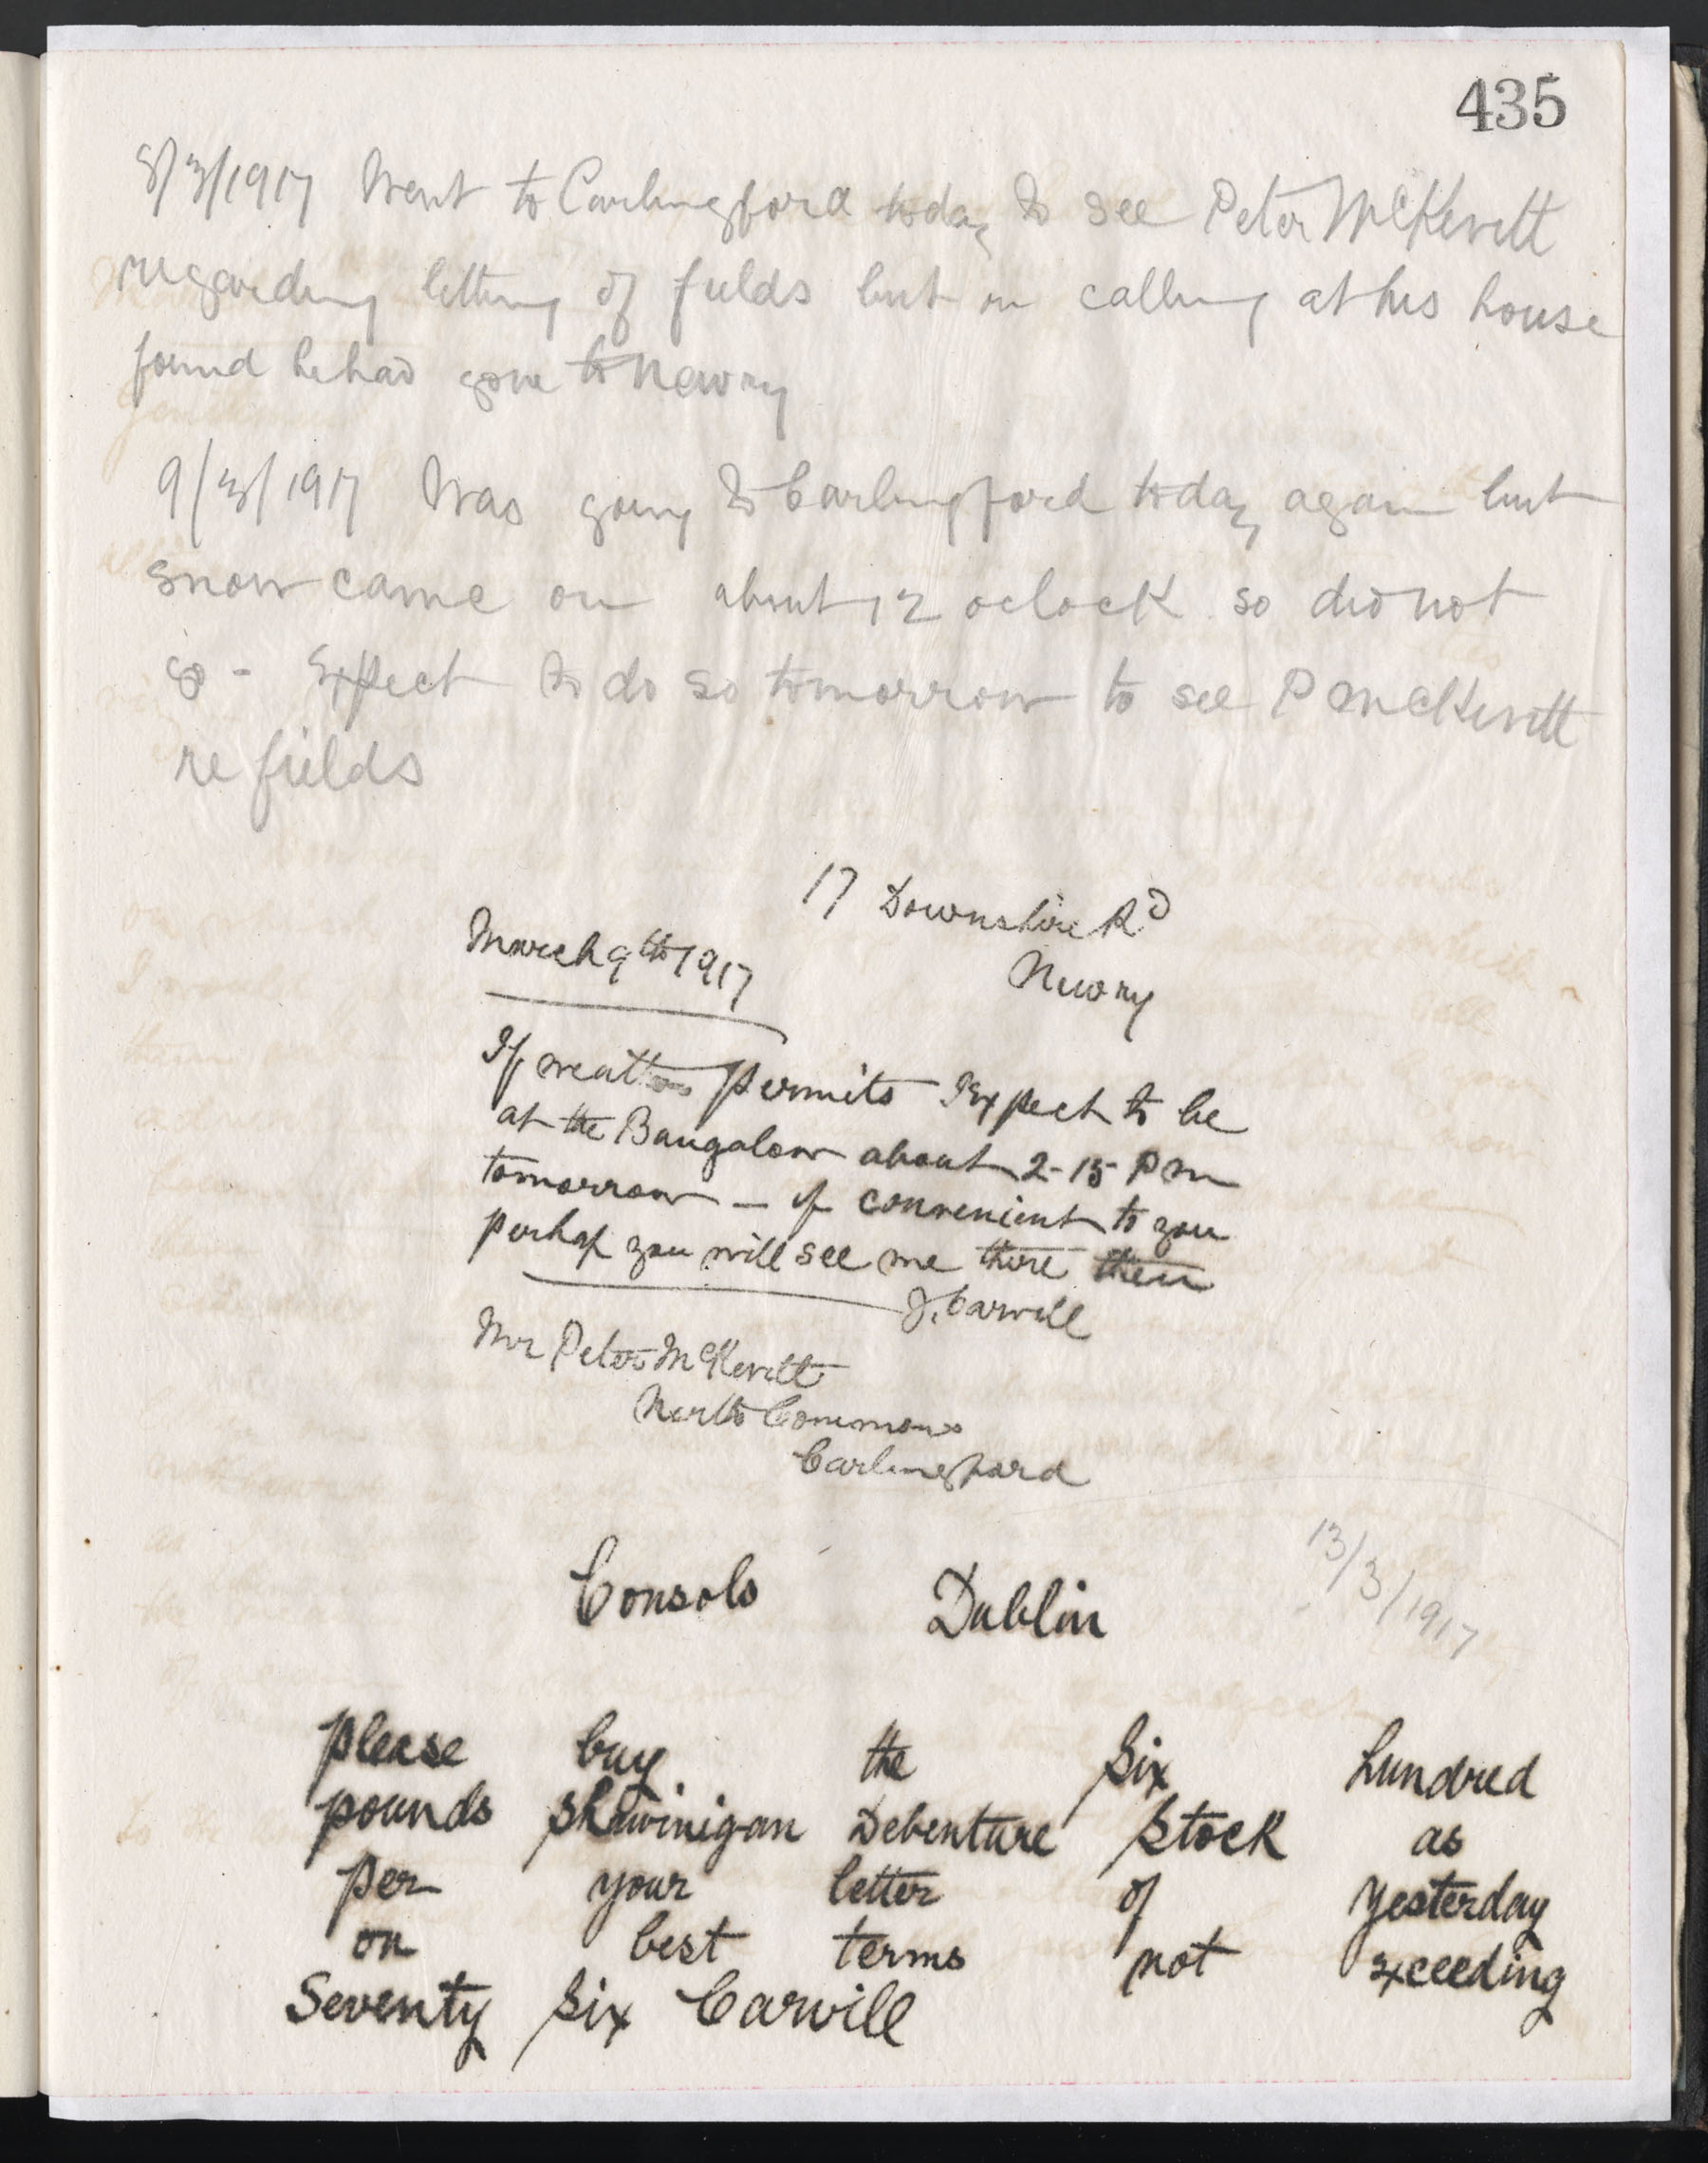 435
8/3/1917 Went to Carlingford today to see Peter McKevitt
regarding letting of fields but on calling at his house
found he had gone to Newry
9/3/1917 Was going to Carlingford today again but
snow came on about 12 oclock so did not
go - Expect to do so tomorrow to see P McKevitt
re fields
17 Downshire Rd
March 9th 1917
Newry
If weather permits Expect to be
at the Bungalow about 2-15 Pm
tomorrow - if convenient to you
perhaps you will see me there then
J. Carvill
Mr Peter McKevitt
North Commons
Carlingford
13/3/1917
Consols Dublin
please buy the six hundred
pounds Shawinigan Debenture Stock as
per your letter of yesterday
on best terms not exceeding
Seventy six Carvill